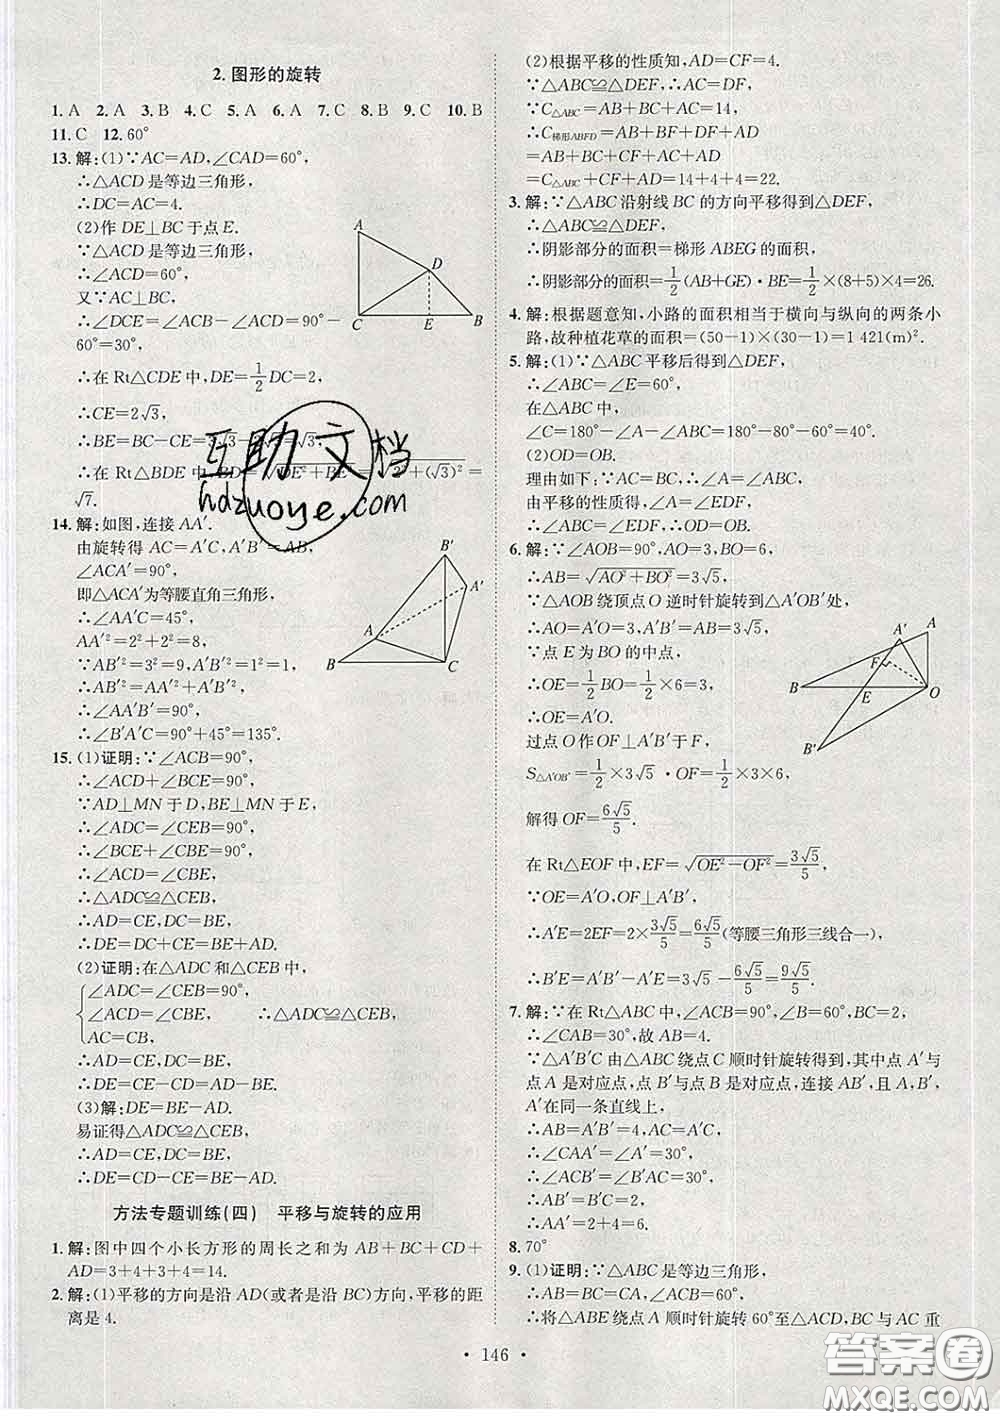 2.图形的旋转
1.A 2.A 3.B 4.C 5.A 6.A 7.C 8.B 9.C 10.B
11.C 12.60°
13.解:(1)∵AC=AD,∠CAD=60°,
∴△ACD是等边三角形,
∴DC=AC=4.
(2)作DE⊥BC于点E.
∵△ACD是等边三角形,
∴∠ACD=60°,
又∵AC⊥BC,
∴∠DCE=∠ACB-∠ACD=90°-
60°=30°,
∴在Rt△CDE中,DE=1/2DC=2,
∴CE=2√3,
∴BE=BC-CE=3√3-2√3=√3,
∴在Rt△BDE中,BD=√(DE²+BE²)=√(2²+(√3)²)=
√7.
A
D
C
E
B
14.解:如图,连接AA′.
由旋转得AC=A′C,A′B′=AB,
∠ACA′=90°,
即△ACA′为等腰直角三角形,
∴∠AA′C=45°,
AA′²=2²+2²=8,
∵AB′²=3²=9,A′B′²=1²=1,
∴AB′²=AA′²+A′B′²,
∴∠AA′B′=90°,
∴∠B′A′C=90°+45°=135°.
B′
A′
A
B
C
15.(1)证明:∵∠ACB=90°,
∴∠ACD+∠BCE=90°,
∵AD⊥MN于D,BE⊥MN于E,
∴∠ADC=∠CEB=90°,
∴∠BCE+∠CBE=90°,
∴∠ACD=∠CBE,
∴△ADC≌△CEB,
∴AD=CE,DC=BE,
∴DE=DC+CE=BE+AD.
(2)证明:在△ADC和△CEB中,
∠ADC=∠CEB=90°,
∠ACD=∠CBE, ∴△ADC≌△CEB,
AC=CB,
∴AD=CE,DC=BE,
∴DE=CE-CD=AD-BE.
(3)解:DE=BE-AD.
易证得△ADC≌△CEB,
∴AD=CE,DC=BE,
∴DE=CD-CE=BE-AD.
方法专题训练(四) 平移与旋转的应用
1.解:图中四个小长方形的周长之和为AB+BC+CD+
AD=3+4+3+4=14.
2.解:(1)平移的方向是沿AD(或者是沿BC)方向,平移的距
离是4.
(2)根据平移的性质知,AD=CF=4.
∵△ABC≌△DEF,∴AC=DF.
∵C△ABC=AB+BC+AC=14,
∴C梯形ABFD=AB+BF+DF+AD
=AB+BC+CF+AC+AD
=C△ABC+CF+AD=14+4+4=22.
3.解:∵△ABC沿射线BC的方向平移得到△DEF,
∴△ABC≌△DEF,
∴阴影部分的面积=梯形ABEG的面积,
∴阴影部分的面积=1/2(AB+GE)·BE=1/2×(8+5)×4=26.
4.解:根据题意知,小路的面积相当于横向与纵向的两条小
路,故种植花草的面积=(50-1)×(30-1)=1 421(m²).
5.解:(1)∵△ABC平移后得到△DEF,
∴∠ABC=∠E=60°,
在△ABC中,
∠C=180°-∠A-∠ABC=180°-80°-60°=40°.
(2)OD=OB.
理由如下:∵∠ABC=∠A,
由平移的性质得,∠A=∠EDF,
∴∠ABC=∠EDF,∴OD=OB.
6.解:∵∠AOB=90°,AO=3,BO=6,
∴AB=√(AO²+BO²)=3√5,
∵△AOB绕顶点O逆时针旋转到△A′OB′处,
∴AO=A′O=3,A′B′=AB=3√5,
∵点E为BO的中点,
∴OE=1/2BO=1/2×6=3,
∴OE=A′O.
过点O作OF⊥A′B′于F,
S△A′OB′=1/2×3√5·OF=1/2×3×6,
解得OF=6√5/5.
在Rt△EOF中,EF=√(OE²-OF²)=3√5/5,
∵OE=A′O,OF⊥A′B′,
∴A′E=2EF=2×3√5/5=6√5/5(等腰三角形三线合一),
∴B′E=A′B′-A′E=3√5-6√5/5=9√5/5.
A′
A
F
B
E
O
B′
7.解:∵在Rt△ABC中,∠ACB=90°,∠B=60°,BC=2,
∴∠CAB=30°,故AB=4.
∵△A′B′C由△ABC绕点C顺时针旋转得到,其中点A′与
点A是对应点,点B′与点B是对应点,连接AB′,且A,B′,
A′在同一条直线上,
∴AB=A′B′=4,AC=A′C,
∴∠CAA′=∠A′=30°,
∴∠ACB′=∠B′AC=30°,
∴AB′=B′C=2,
∴AA′=2+4=6.
8.70°
9.(1)证明:∵△ABC是等边三角形,
∴AB=BC=CA,∠ABC=60°,
∴将△ABE绕点A顺时针旋转60°至△ACD,BC与AC重
·146·
互助文档
hdzuoye.com
答案圈
MXQE.COM